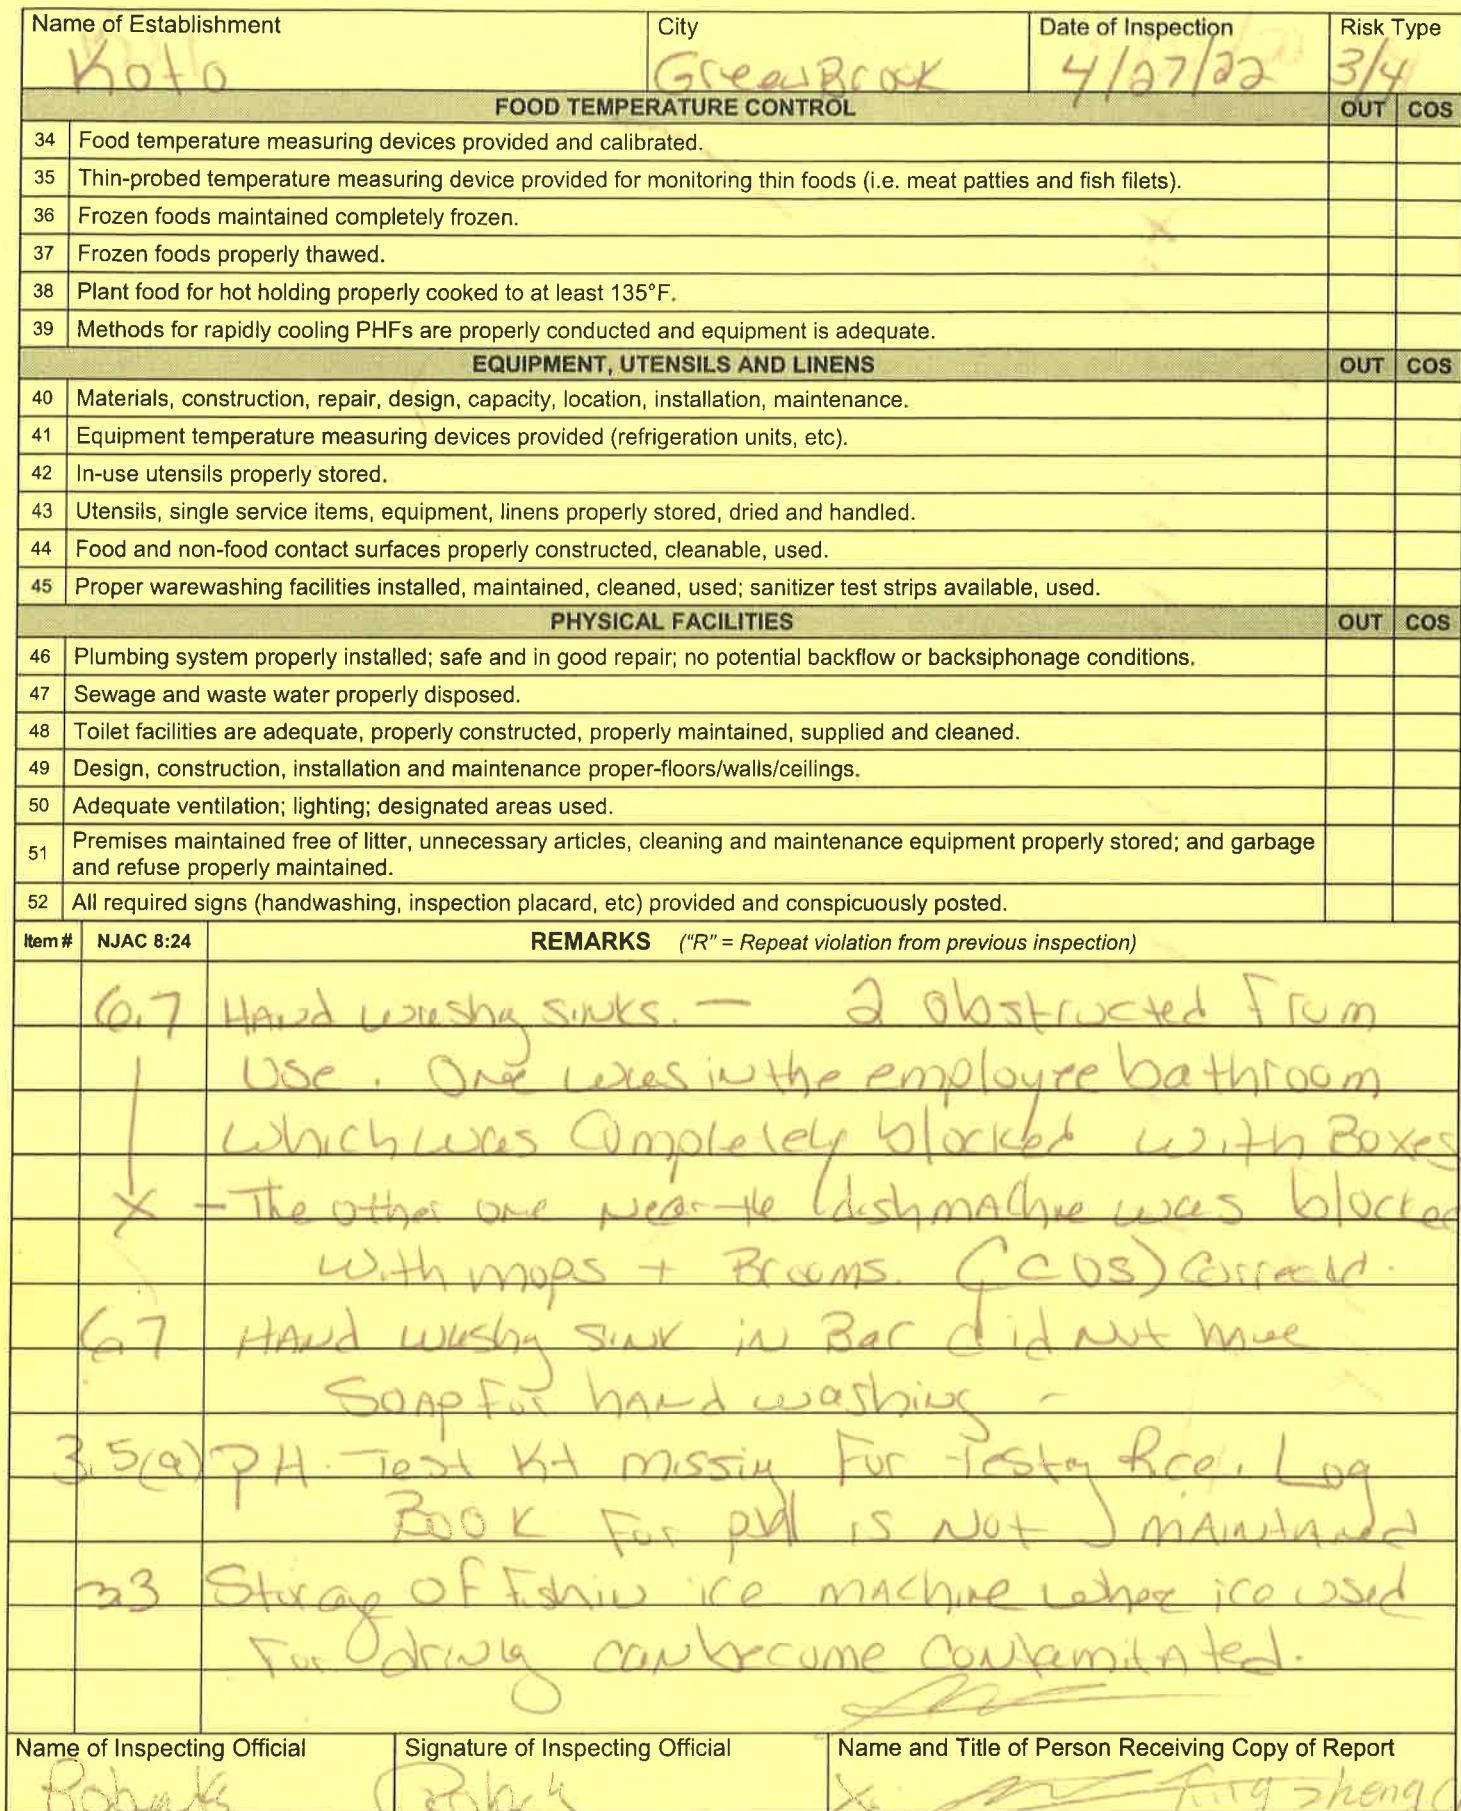 Name of Establishment City Date of Inspection Risk Type
Koto Green Brook 4/27/22 3/4
FOOD TEMPERATURE CONTROL OUT COS
34 Food temperature measuring devices provided and calibrated.
35 Thin-probed temperature measuring device provided for monitoring thin foods (i.e. meat patties and fish filets).
36 Frozen foods maintained completely frozen.
37 Frozen foods properly thawed.
38 Plant food for hot holding properly cooked to at least 135°F.
39 Methods for rapidly cooling PHFs are properly conducted and equipment is adequate.
EQUIPMENT, UTENSILS AND LINENS OUT COS
40 Materials, construction, repair, design, capacity, location, installation, maintenance.
41 Equipment temperature measuring devices provided (refrigeration units, etc).
42 In-use utensils properly stored.
43 Utensils, single service items, equipment, linens properly stored, dried and handled.
44 Food and non-food contact surfaces properly constructed, cleanable, used.
45 Proper warewashing facilities installed, maintained, cleaned, used; sanitizer test strips available, used.
PHYSICAL FACILITIES OUT COS
46 Plumbing system properly installed; safe and in good repair; no potential backflow or backsiphonage conditions.
47 Sewage and waste water properly disposed.
48 Toilet facilities are adequate, properly constructed, properly maintained, supplied and cleaned.
49 Design, construction, installation and maintenance proper-floors/walls/ceilings.
50 Adequate ventilation; lighting; designated areas used.
51 Premises maintained free of litter, unnecessary articles, cleaning and maintenance equipment properly stored; and garbage
and refuse properly maintained.
52 All required signs (handwashing, inspection placard, etc) provided and conspicuously posted.
Item # NJAC 8:24 REMARKS ("R" = Repeat violation from previous inspection)
6.7 Hand washg sinks. - 2 obstructed from
use. One was in the employee bathroom
which was completely blocked with Boxes
X - The other one near the dishmachine was blocked
with mops + Brooms. (COS) Corrected.
6.7 Hand washg sink in Bar did not have
Soap for hand washing -
3.5(a) PH. Test Kit missing For Testg Rice. Log
Book For pH is Not maintained
3.3 Storage of Fish in ice machine where ice used
For drinkg can become contaminated.
Name of Inspecting Official Signature of Inspecting Official Name and Title of Person Receiving Copy of Report
X